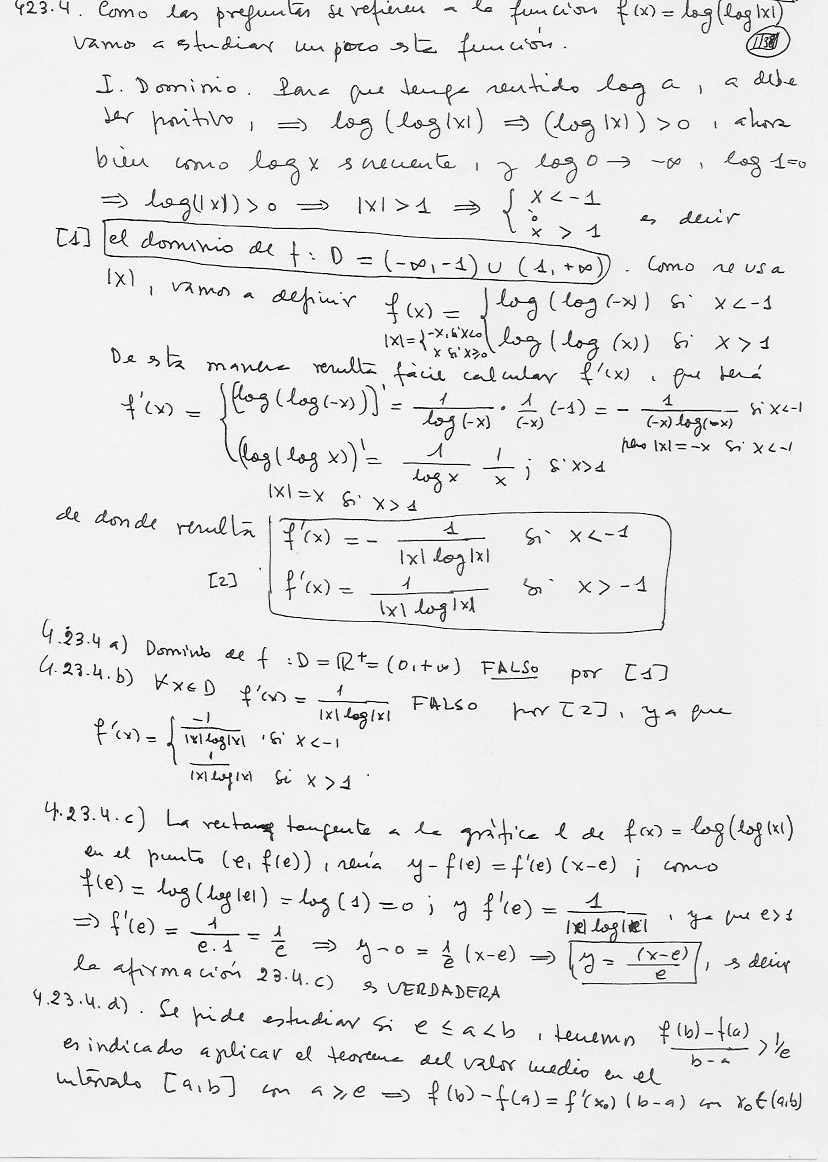 423.4. Como las preguntas se refieren a la función f(x) = log(log|x|)
vamos a estudiar un poco esta función.
I. Dominio. Para que tenga sentido log a, a debe
ser positivo, ⇒ log(log|x|) ⇒ (log|x|) > 0, ahora
bien como log x s creciente, y log 0 → -∞, log 1=0
⇒ log(|x|) > 0 ⇒ |x| > 1 ⇒ { x < -1 ò x > 1 es decir
[1] el dominio de f : D = (-∞, -1) ∪ (1, +∞). Como se usa
|x|, vamos a definir f(x) = { log(log(-x)) si x < -1
|x| = { -x, si x<0 x si x≥0 log(log(x)) si x > 1
De esta manera resulta fácil calcular f'(x), que será
f'(x) = { (log(log(-x)))' = 1/log(-x) · 1/(-x) (-1) = - 1/((-x)log(-x)) si x<-1
pero |x| = -x si x<-1
(log(log x))' = 1/log x 1/x ; si x>1
|x| = x si x>1
de donde resulta f'(x) = - 1/(|x| log|x|) si x < -1
[2] f'(x) = 1/(|x| log|x|) si x > -1
4.23.4 a) Dominio de f : D = ℝ⁺ = (0, +∞) FALSO por [1]
4.23.4.b) ∀x∈D f'(x) = 1/(|x| log|x|) FALSO por [2], ya que
f'(x) = { -1/(|x| log|x|) si x < -1
1/(|x| log|x|) si x > 1.
4.23.4.c) La recta tangente a la gráfica l de f(x) = log(log|x|)
en el punto (e, f(e)), sería y - f(e) = f'(e) (x-e) ; como
f(e) = log(log|e|) = log(1) = 0 ; y f'(e) = 1/(|e| log|e|), ya que e>1
⇒ f'(e) = 1/(e·1) = 1/e ⇒ y-0 = 1/e (x-e) ⇒ y = (x-e)/e, s decir
la afirmación 23.4.c) s VERDADERA
4.23.4.d). Se pide estudiar si e ≤ a < b, tenemos (f(b)-f(a))/(b-a) > 1/e
es indicado aplicar el teorema del valor medio en el
intervalo [a,b] con a ≥ e ⇒ f(b) - f(a) = f'(x₀) (b-a) con x₀ ∈ (a,b)